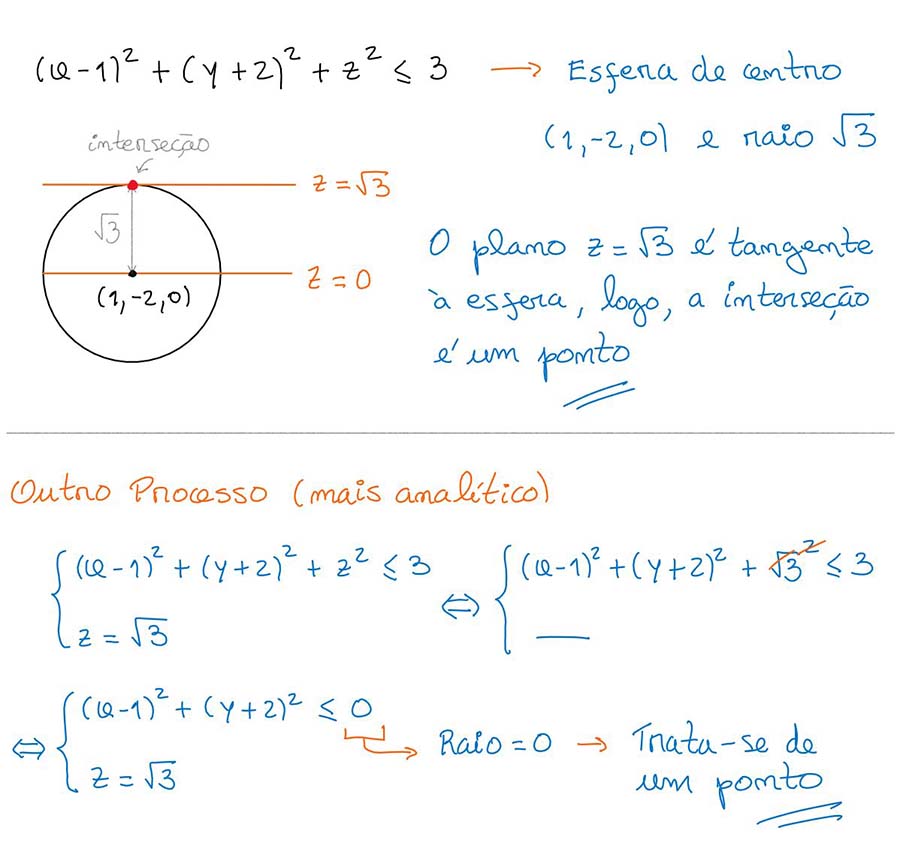 (x-1)² + (y+2)² + z² ≤ 3 → Esfera de centro
(1,-2,0) e raio √3
interseção
z = √3
√3
z = 0
(1,-2,0)
O plano z = √3 é tangente
à esfera, logo, a interseção
é um ponto
Outro Processo (mais analítico)
{ (x-1)² + (y+2)² + z² ≤ 3 ⇔ { (x-1)² + (y+2)² + √3² ≤ 3
z = √3 ___
⇔ { (x-1)² + (y+2)² ≤ 0
z = √3
→ Raio = 0 → Trata-se de
um ponto